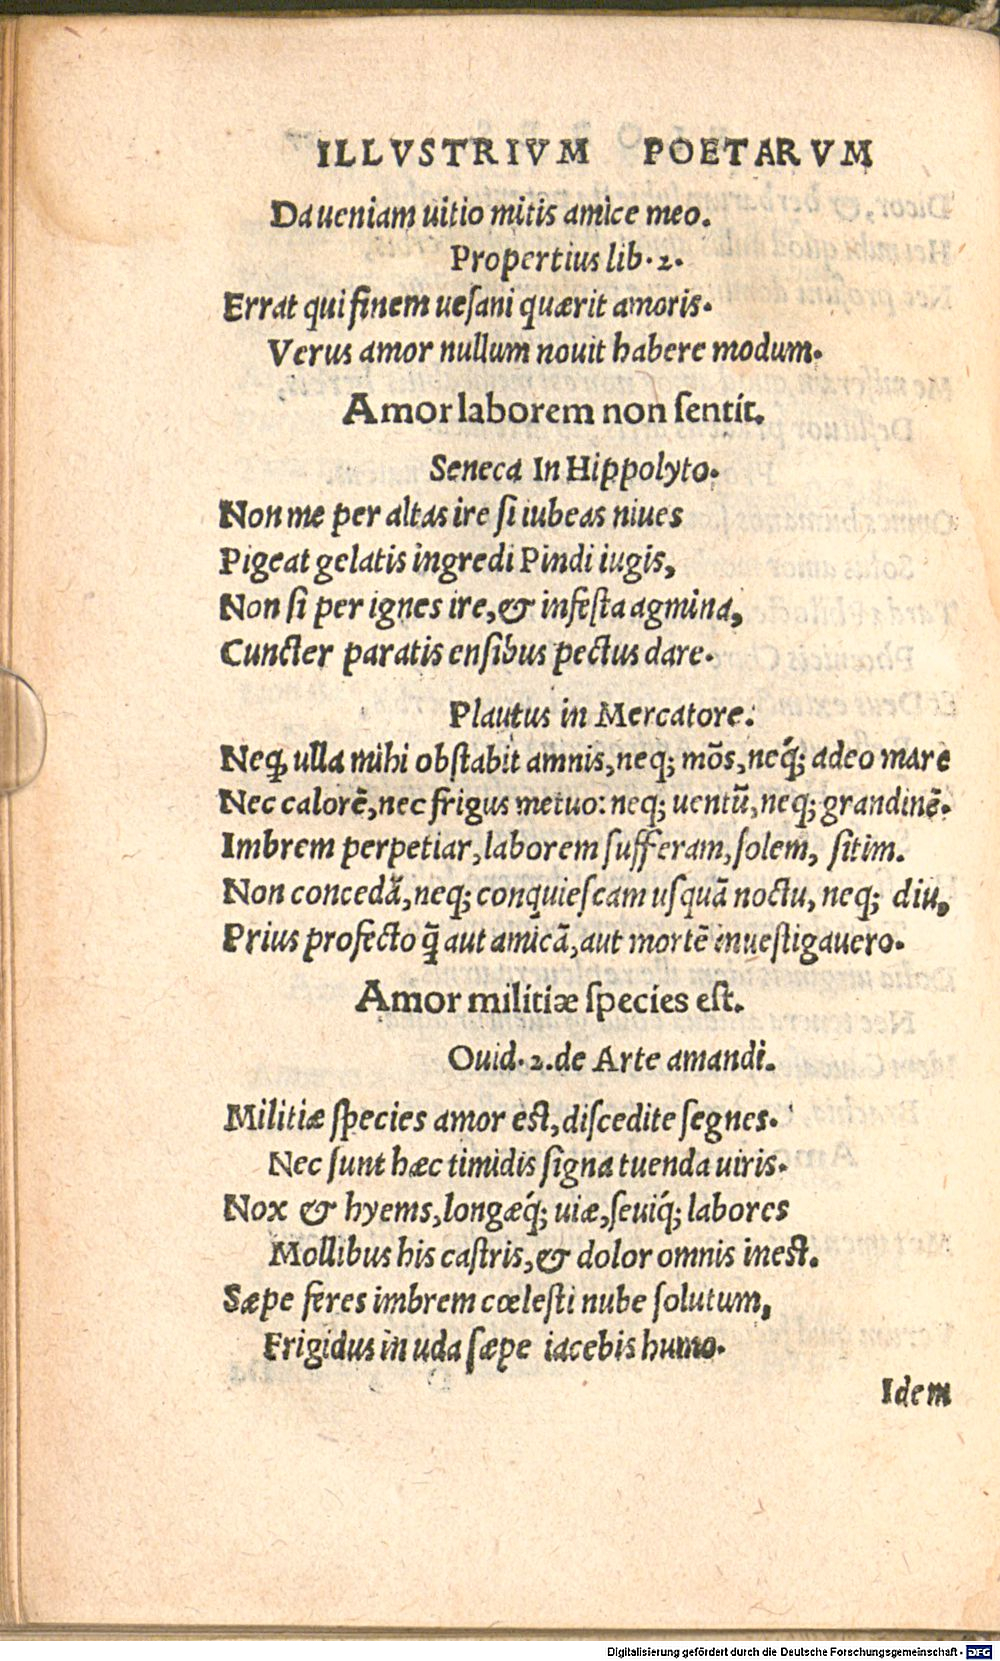 ILLVSTRIVM POETARVM
Da ueniam uitio mitis amice meo.
Propertius lib. 2.
Errat qui finem uesani quærit amoris.
Verus amor nullum nouit habere modum.
Amor laborem non sentit.
Seneca In Hippolyto.
Non me per altas ire si iubeas niues
Pigeat gelatis ingredi Pindi iugis,
Non si per ignes ire, & infesta agmina,
Cuncter paratis ensibus pectus dare.
Plautus in Mercatore.
Neq; ulla mihi obstabit amnis, neq; mõs, neq́; adeo mare
Nec calorē, nec frigus metuo: neq; uentũ, neq; grandinē.
Imbrem perpetiar, laborem sufferam, solem, sitim.
Non concedã, neq; conquiescam usquã noctu, neq; diu,
Prius profecto q̃ aut amicã, aut mortē inuestigauero.
Amor militiæ species est.
Ouid. 2. de Arte amandi.
Militiæ species amor est, discedite segnes.
Nec sunt hæc timidis signa tuenda uiris.
Nox & hyems, longæq́; uiæ, seuiq́; labores
Mollibus his castris, & dolor omnis inest.
Sæpe feres imbrem cœlesti nube solutum,
Frigidus in uda sæpe iacebis humo.
Idem
Digitalisierung gefördert durch die Deutsche Forschungsgemeinschaft - DFG